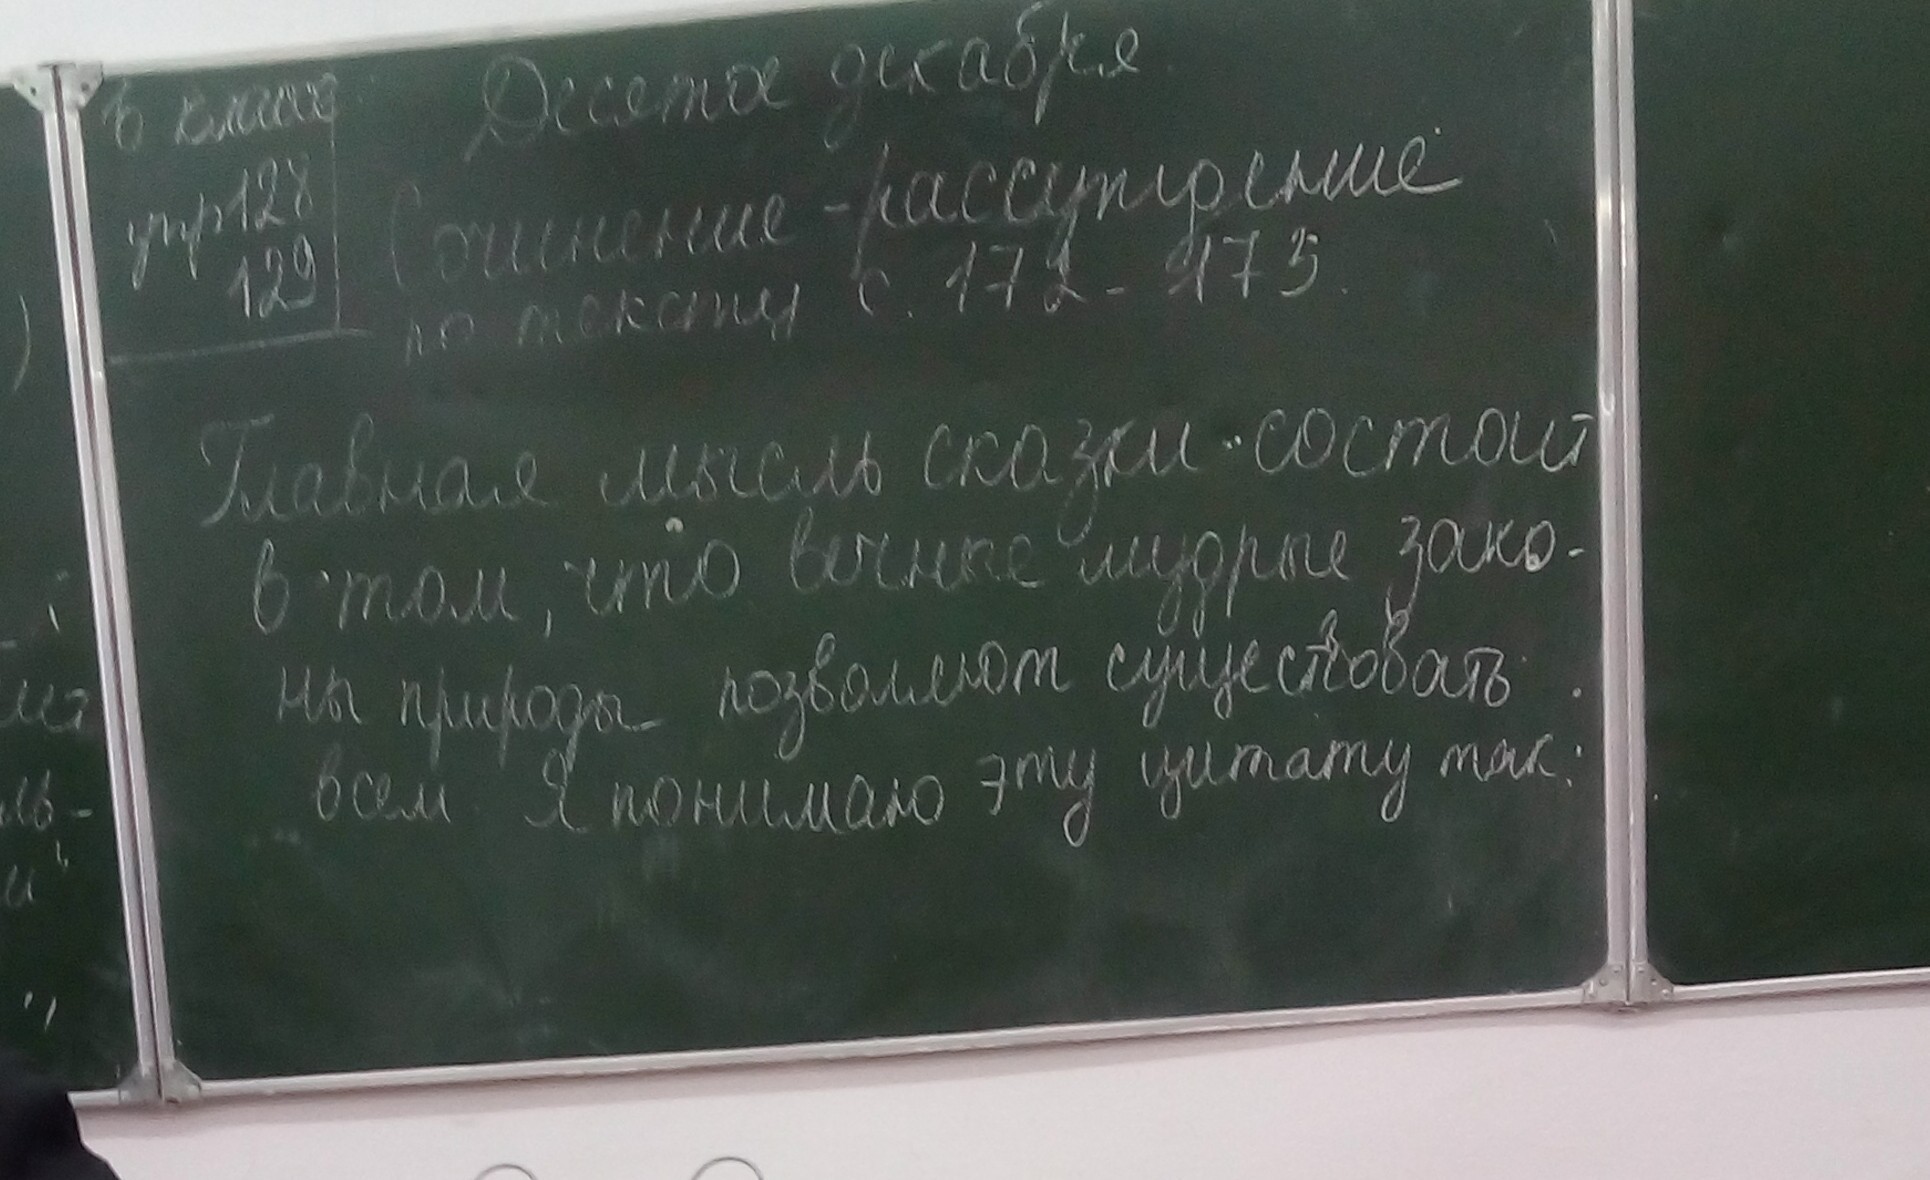 в классе
упр 128
129
Десятое декабря.
Сочинение-рассуждение
по тексту с. 172-173.
Главная мысль сказки состоит
в том, что вечные мудрые зако-
ны природы позволяют существовать
всем. Я понимаю эту цитату так: